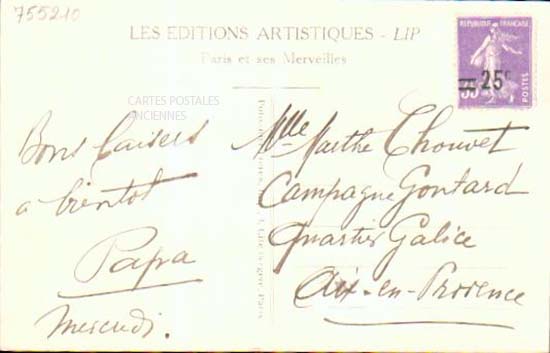 755210
LES EDITIONS ARTISTIQUES - LIP
Paris et ses Merveilles
REPUBLIQUE FRANÇAISE
POSTES
35
= 25c
CARTES POSTALES
ANCIENNES
Bons baisers
a bientot
Papa
Mercredi.
Mlle Marthe Chouvet
Campagne Gontard
Quartier Galice
Aix-en-Provence